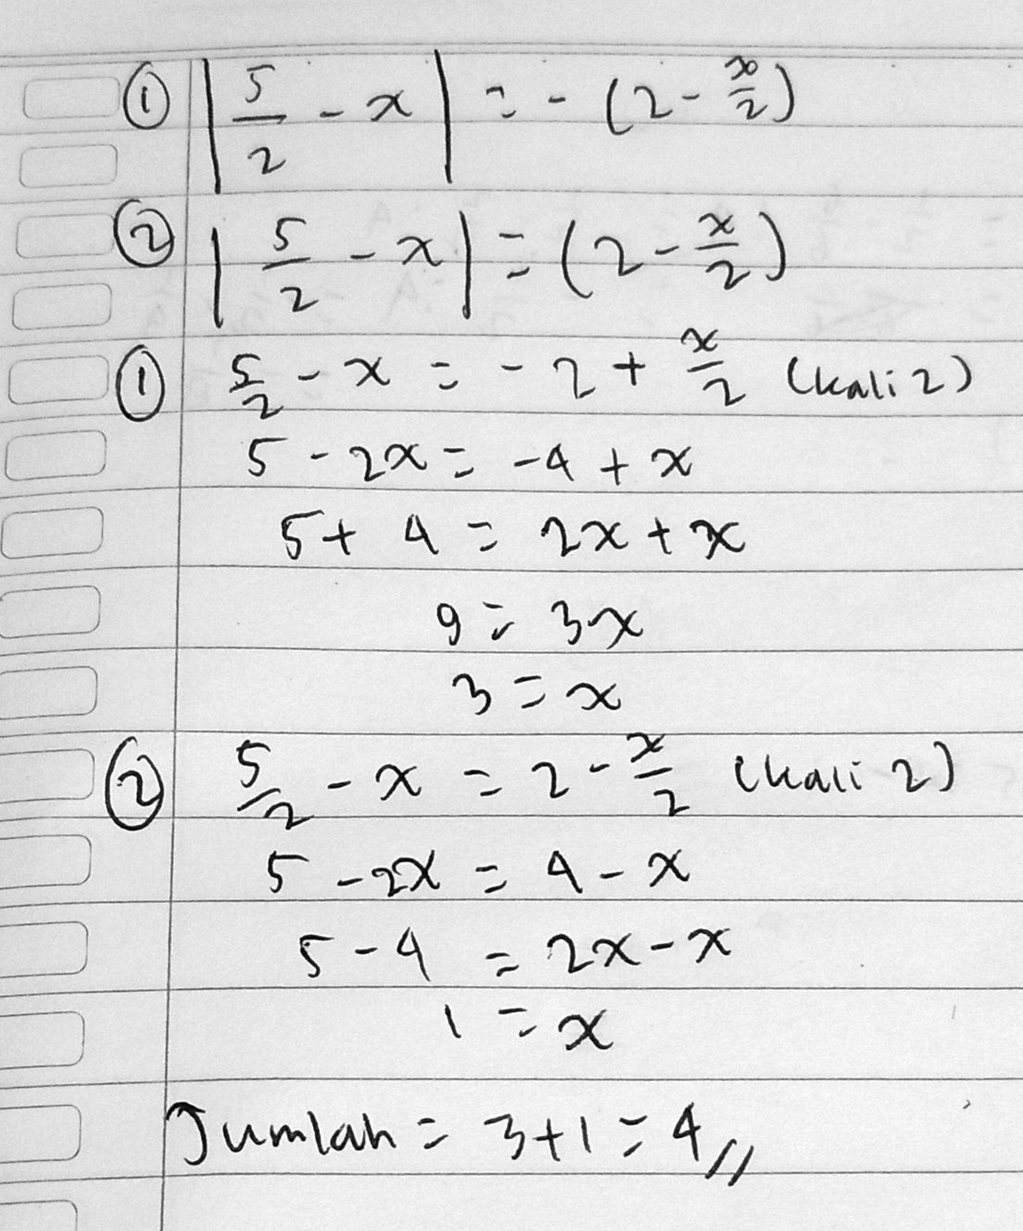 ① |5/2 - x| = - (2 - x/2)
② |5/2 - x| = (2 - x/2)
① 5/2 - x = - 2 + x/2 (kali 2)
5 - 2x = -4 + x
5 + 4 = 2x + x
9 = 3x
3 = x
② 5/2 - x = 2 - x/2 (kali 2)
5 - 2x = 4 - x
5 - 4 = 2x - x
1 = x
Jumlah = 3 + 1 = 4 //